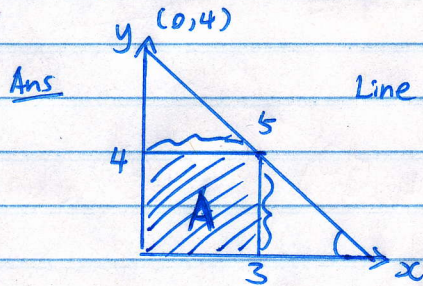 y (0,4)
Ans Line
5
4
A
3 x